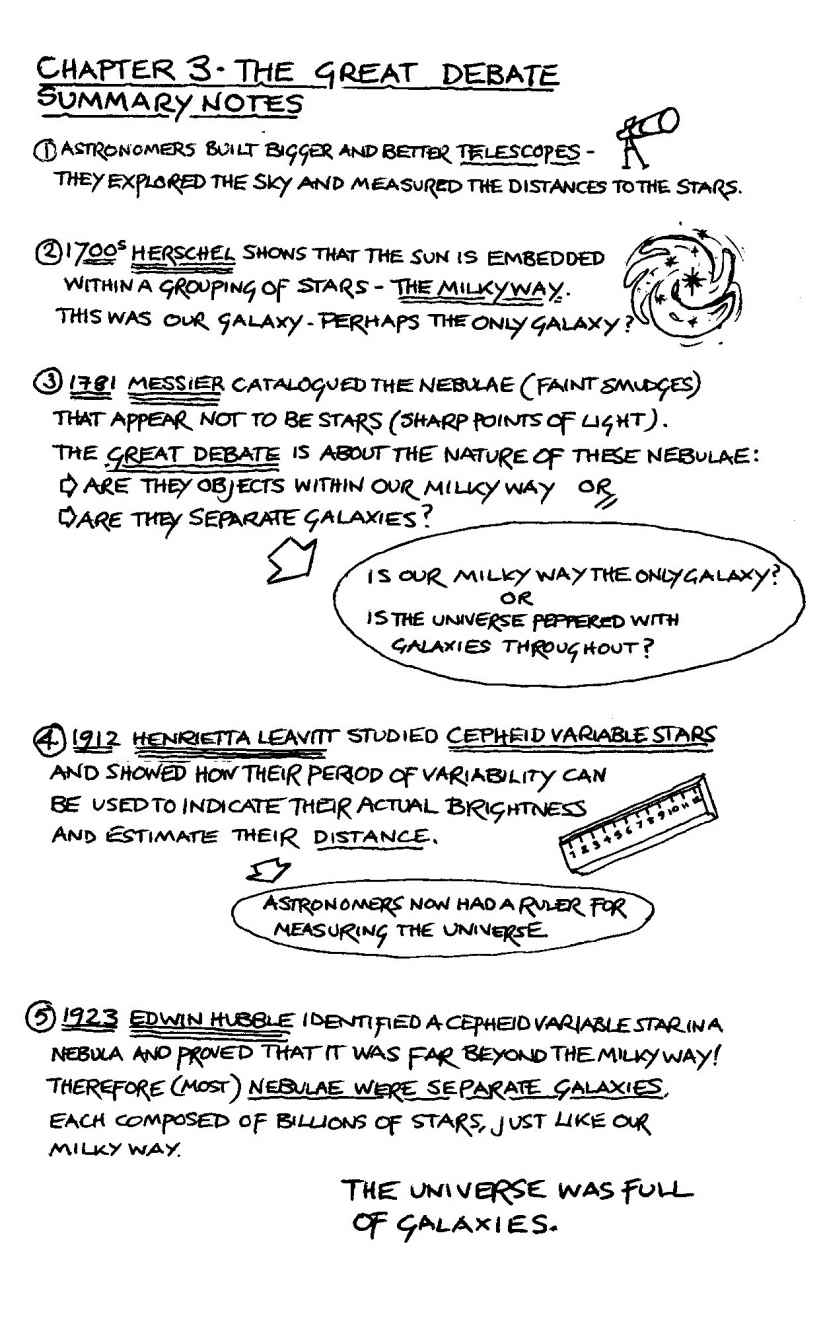 CHAPTER 3 - THE GREAT DEBATE
SUMMARY NOTES
① ASTRONOMERS BUILT BIGGER AND BETTER TELESCOPES -
THEY EXPLORED THE SKY AND MEASURED THE DISTANCES TO THE STARS.
② 1700s HERSCHEL SHOWS THAT THE SUN IS EMBEDDED
WITHIN A GROUPING OF STARS - THE MILKY WAY.
THIS WAS OUR GALAXY - PERHAPS THE ONLY GALAXY?
③ 1781 MESSIER CATALOGUED THE NEBULAE (FAINT SMUDGES)
THAT APPEAR NOT TO BE STARS (SHARP POINTS OF LIGHT).
THE GREAT DEBATE IS ABOUT THE NATURE OF THESE NEBULAE:
⇨ ARE THEY OBJECTS WITHIN OUR MILKY WAY OR
⇨ ARE THEY SEPARATE GALAXIES?
IS OUR MILKY WAY THE ONLY GALAXY?
OR
IS THE UNIVERSE PEPPERED WITH
GALAXIES THROUGHOUT?
④ 1912 HENRIETTA LEAVITT STUDIED CEPHEID VARIABLE STARS
AND SHOWED HOW THEIR PERIOD OF VARIABILITY CAN
BE USED TO INDICATE THEIR ACTUAL BRIGHTNESS
AND ESTIMATE THEIR DISTANCE.
1 2 3 4 5 6 7 8 9 10 11 12
ASTRONOMERS NOW HAD A RULER FOR
MEASURING THE UNIVERSE
⑤ 1923 EDWIN HUBBLE IDENTIFIED A CEPHEID VARIABLE STAR IN A
NEBULA AND PROVED THAT IT WAS FAR BEYOND THE MILKY WAY!
THEREFORE (MOST) NEBULAE WERE SEPARATE GALAXIES,
EACH COMPOSED OF BILLIONS OF STARS, JUST LIKE OUR
MILKY WAY.
THE UNIVERSE WAS FULL
OF GALAXIES.